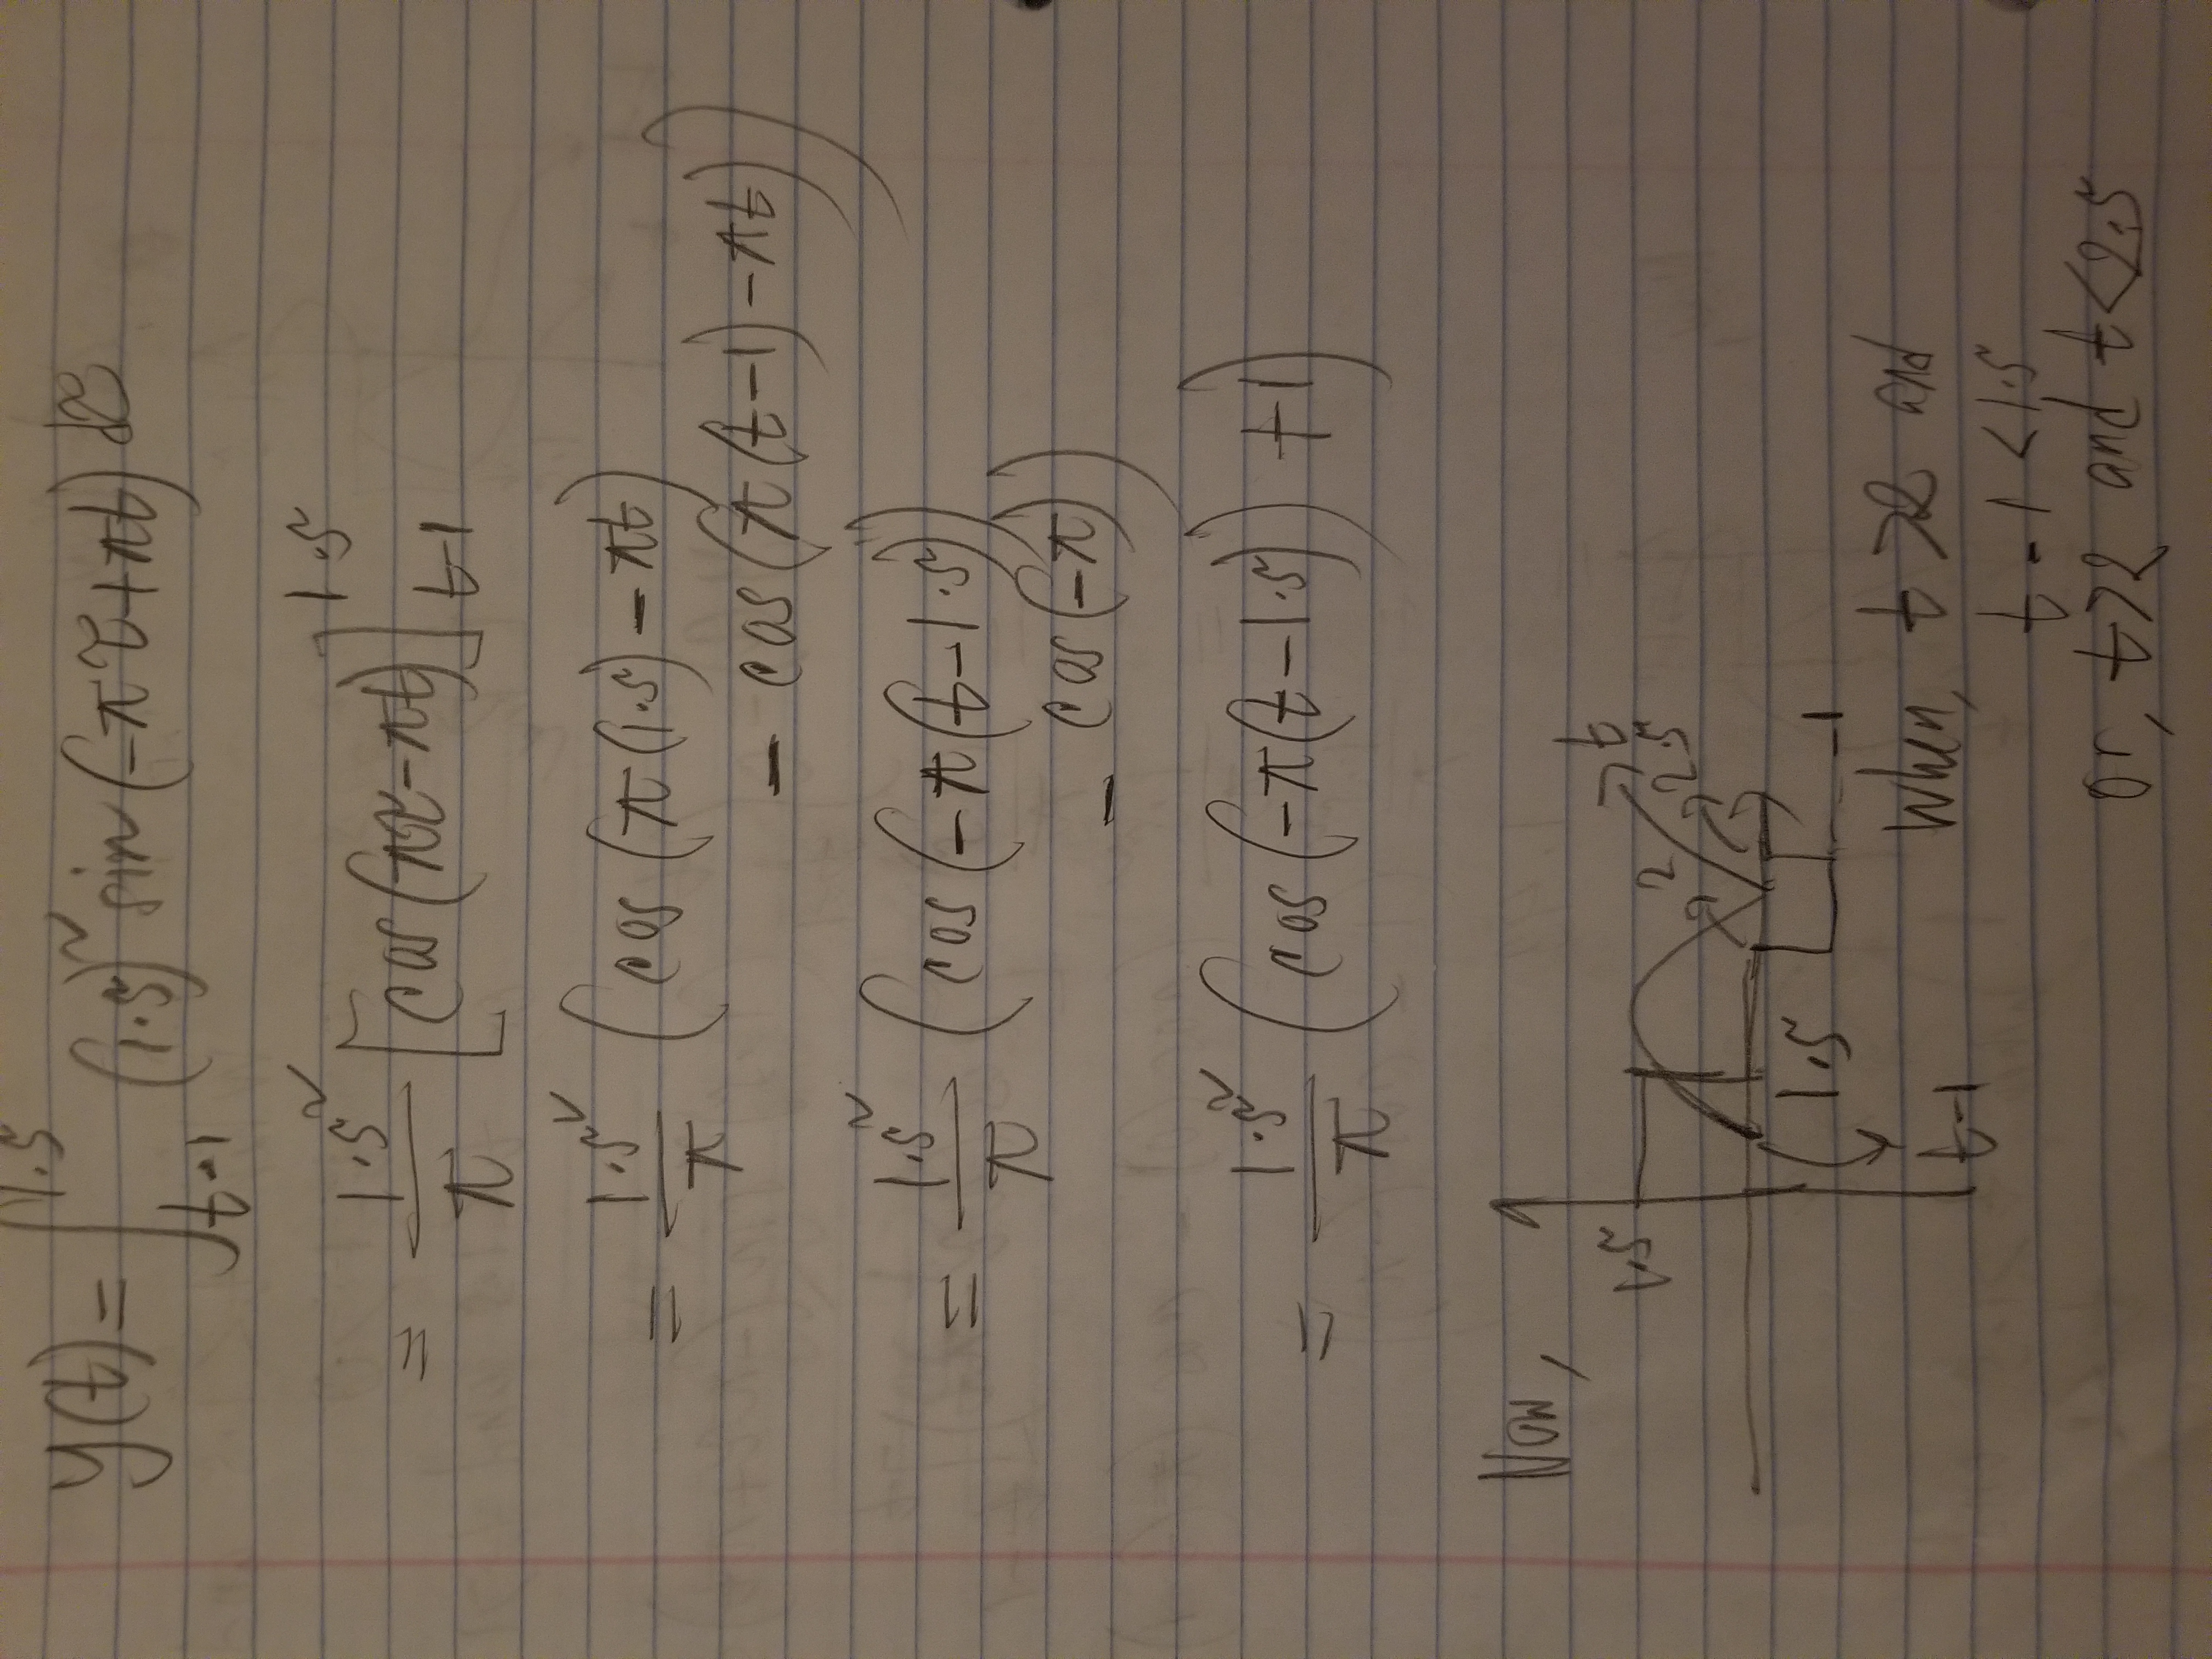 y(t) = ∫_{t-1}^{1.5} (1.5)² sin(-πτ+πt) dτ
= 1.5²/π [cos(πτ-πt)]_{t-1}^{1.5}
= 1.5²/π (cos(π(1.5)-πt)
- cos(π(t-1)-πt))
= 1.5²/π (cos(-π(t-1.5))
- cos(-π))
= 1.5²/π (cos(-π(t-1.5))+1)
Now,
t
1.5
2
2.5
1.5
-1
t-1
When, t>2 and
t-1<1.5
or, t>2 and t<2.5